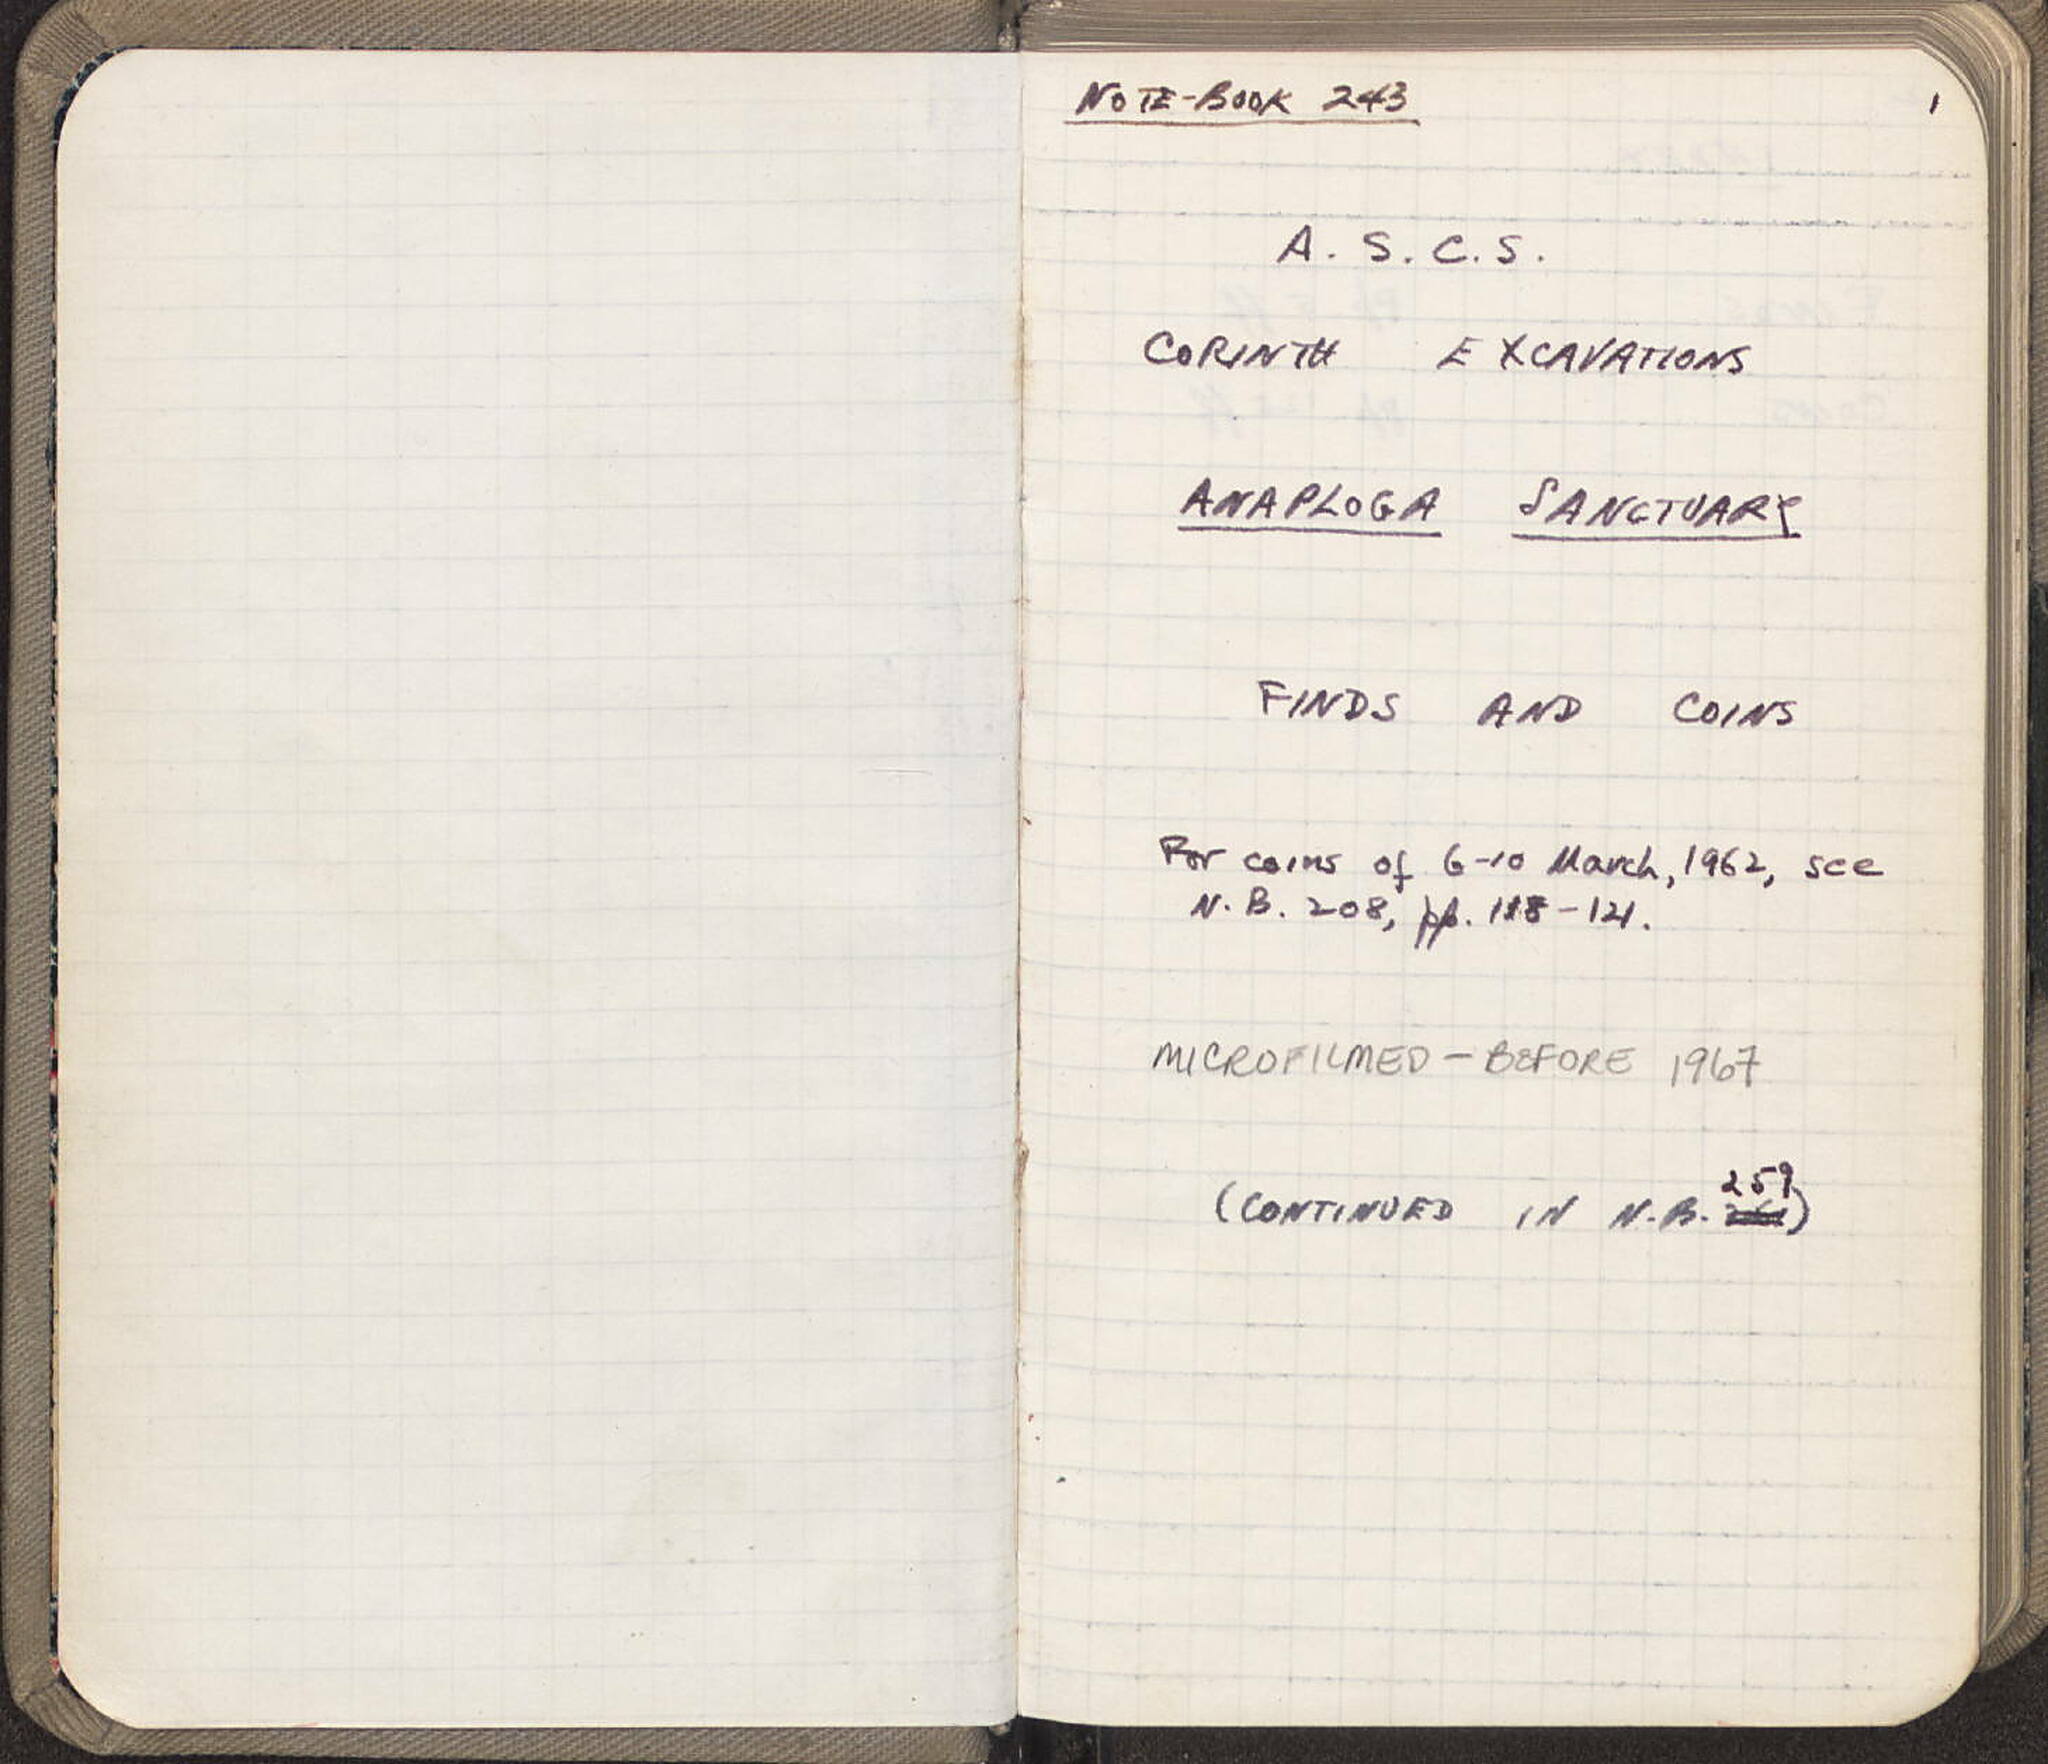 NOTE-BOOK 243
1
A. S. C. S.
CORINTH EXCAVATIONS
ANAPLOGA SANCTUARY
FINDS AND COINS
For coins of 6-10 March, 1962, see
N. B. 208, pp. 118-121.
MICROFILMED - BEFORE 1967
(CONTINUED IN N.B. 259)